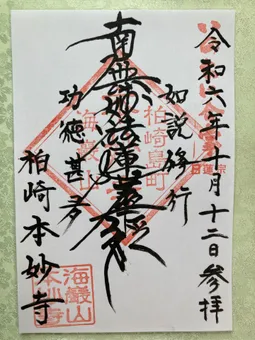 令和六年十月十二日参拝
如説修行
南無妙法蓮華経
功徳甚多
柏崎本妙寺
柏崎島町
海巖山
海巖山
本妙寺